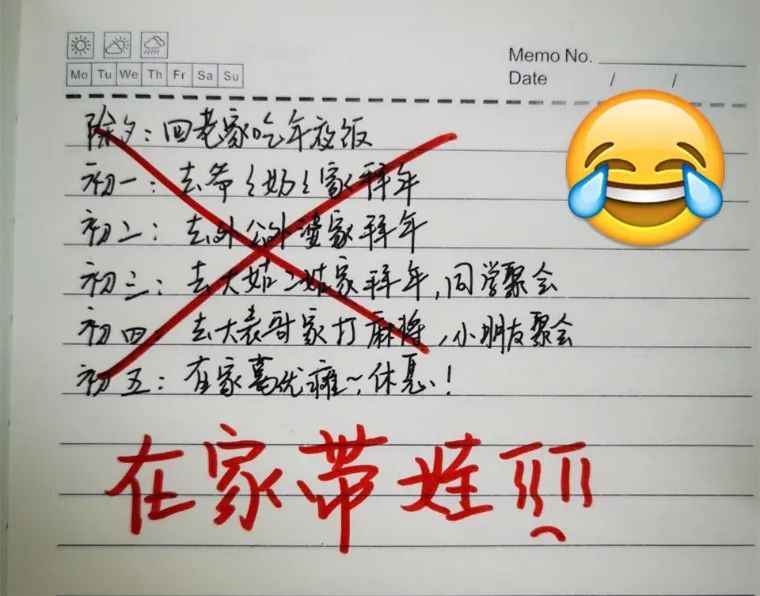 Memo No.
Mo Tu We Th Fr Sa Su
Date / /
除夕：回老家吃年夜饭
初一：去爷〻奶〻家拜年
初二：去外公外婆家拜年
初三：去大姑二姑家拜年，同学聚会
初四：去大表哥家打麻将，小朋友聚会
初五：在家葛优瘫～休息！
在家带娃